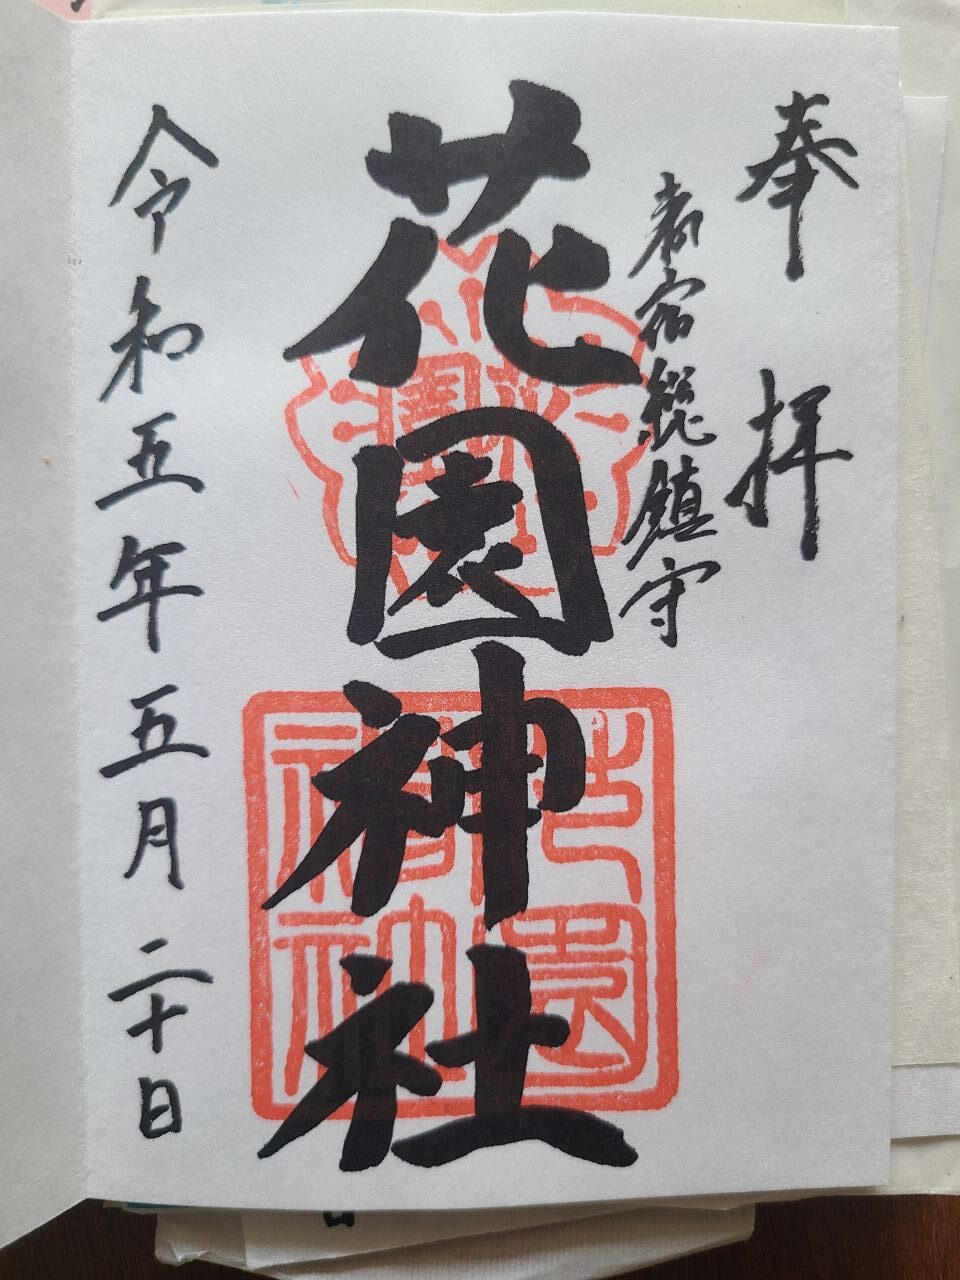 奉拝
新宿総鎮守
花園神社
令和五年五月二十日
花園神社